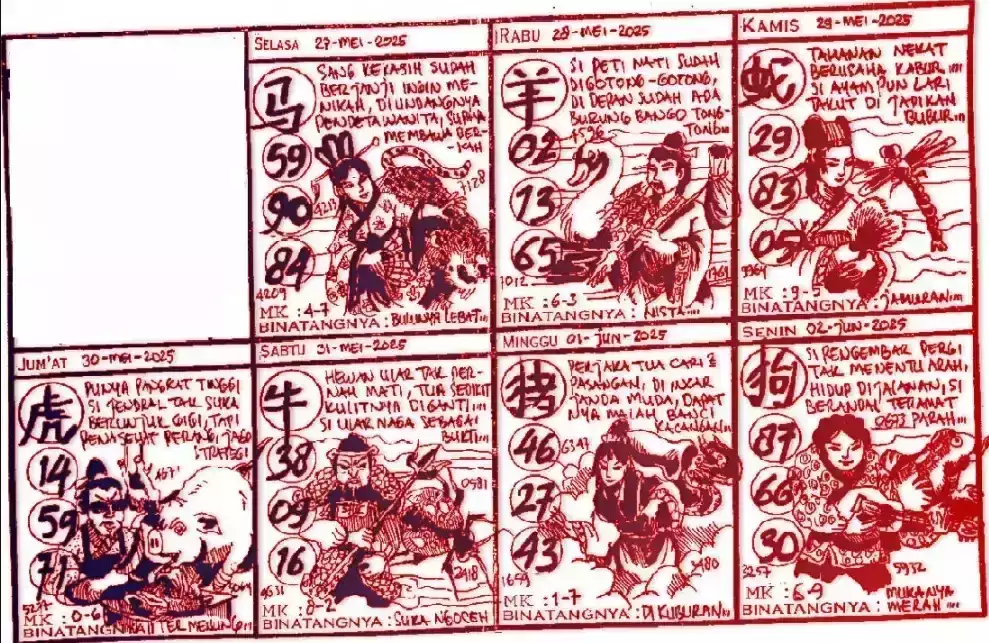 SELASA 27-MEI-2025
马
SANG KEKASIH SUDAH
BERJANJI INGIN ME-
NIKAH, DI UNDANGNYA
PENDETA WANITA, SUPAYA
MEMBAWA BER-
59
90
84
4213
7128
4209
MK : 4-7
BINATANGNYA : BULUNYA LEBAT...
RABU 28-MEI-2025
羊
SI PETI MATI SUDAH
DI GOTONG-GOTONG,
DI DEPAN SUDAH ADA
BURUNG BANGO TONG-
TONG...
4596
02
13
65
7012
1761
MK : 6-3
BINATANGNYA : NISTA...
KAMIS 29-MEI-2025
蛇
TAHANAN NEKAT
BERUSAHA KABUR....
SI AYAM PUN LARI
TAKUT DI JADIKAN
BUBUR...
29
83
05
9964
MK : 9-5
BINATANGNYA : JAMURAN...
JUM'AT 30-MEI-2025
虎
PUNYA PANGKAT TINGGI
SI JENDRAL TAK SUKA
BERUNTUK GIGI, TAPI
PENASEHAT PERANG, JAGO
STRATEGI
14
59
71
5237
MK : 0-6
BINATANGNYA : TERMENUNG...
SABTU 31-MEI-2025
牛
HEWAN ULAR TAK PER-
NAH MATI, TUA SEDIKIT
KULITNYA DI GANTI....
SI ULAR NAGA SEBAGAI
BUKTI...
38
09
16
0981
2418
MK : 8-2
BINATANGNYA : SUKA NGOCEH
MINGGU 01-JUN-2025
猪
PERJAKA TUA CARI 2
PASANGAN, DI INCAR
JANDA MUDA, DAPAT
NYA MALAH BANCI
KACANGAN...
46
6347
27
43
1659
3480
MK : 1-7
BINATANGNYA : DI KUBURAN...
SENIN 02-JUN-2025
狗
SI PENGEMBAR PERGI
TAK MENENTU ARAH,
HIDUP DI JALANAN, SI
BERANDAL TERAMAT
PARAH...
0673
87
66
30
3257
5932
MK : 6-9
BINATANGNYA : MUKANYA
MERAH...